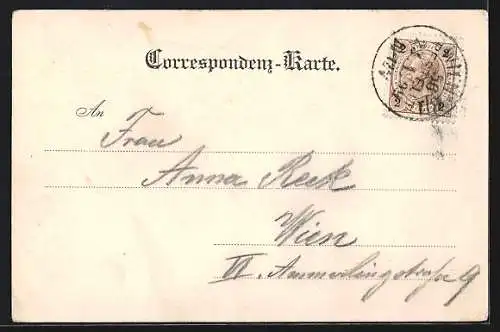 Correspondenz-Karte.
An
Frau
Anna Reck
Wien
VI. Ammerlingstraße 9